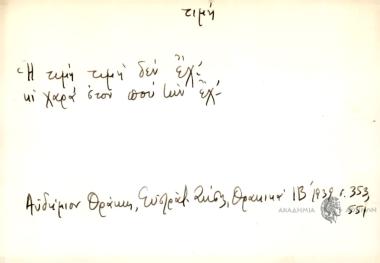 τιμή
Ἡ τιμή τιμή δέν ἔχ'
κι χαρά στον πού τήν ἔχ'
Αὐδήμιον Θράκης, Εὐστράτ. Ζήση, Θρακικά ΙΒ' 1939 σ. 353
551
ΑΚΑΔΗΜΙΑ